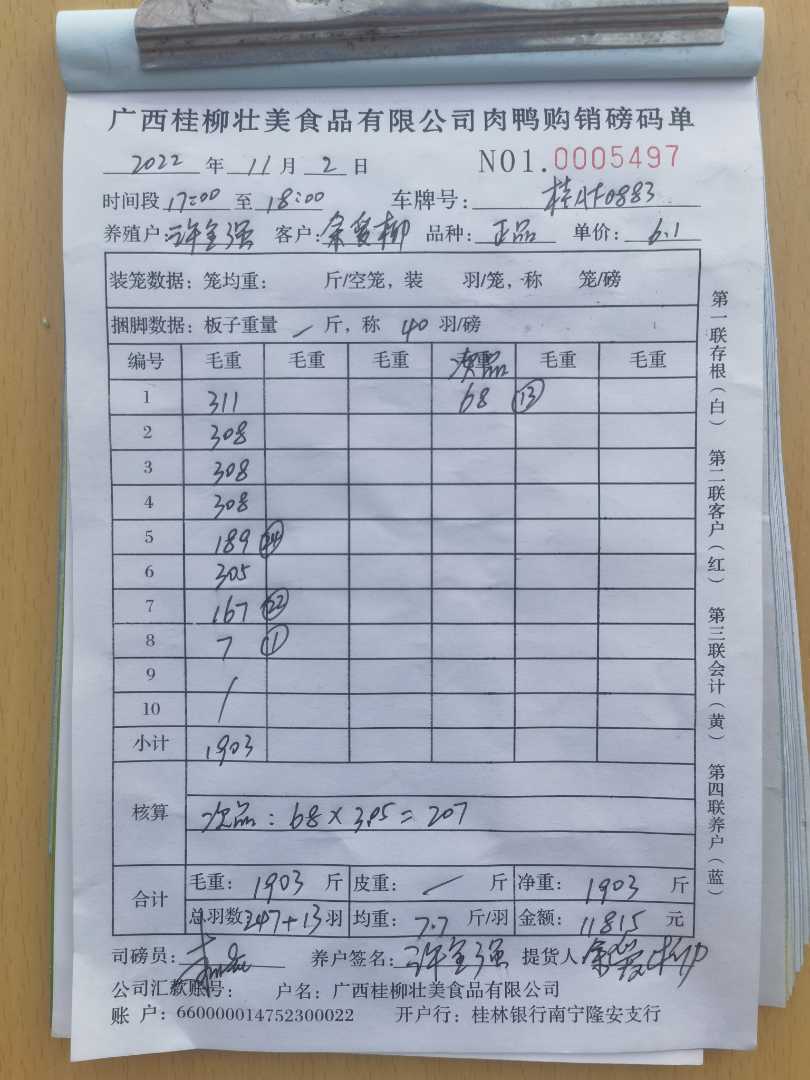 广西桂柳壮美食品有限公司肉鸭购销磅码单
2022 年 11 月 2 日 NO1.0005497
时间段 17:00 至 18:00 车牌号: 0883
养殖户: 许宝强 客户: 柳 品种: 正品 单价: 6.1
装笼数据: 笼均重: 斤/空笼, 装 羽/笼, 称 笼/磅
捆脚数据: 板子重量 — 斤, 称 40 羽/磅
编号 毛重 毛重 毛重 次品 毛重 毛重
1 311 68 ⑬
2 308
3 308
4 308
5 189 ㉔
6 305
7 167 ㉒
8 7 ①
9 /
10
小计 1903
核算 次品: 68 × 3.05 = 207
合计 毛重: 1903 斤 皮重: — 斤 净重: 1903 斤
总羽数 247+13 羽 均重: 7.7 斤/羽 金额: 11815 元
司磅员: 养户签名: 许宝强 提货人
公司汇款账号: 户名: 广西桂柳壮美食品有限公司
账 户: 660000014752300022 开户行: 桂林银行南宁隆安支行
第一联存根(白) 第二联客户(红) 第三联会计(黄) 第四联养户(蓝)